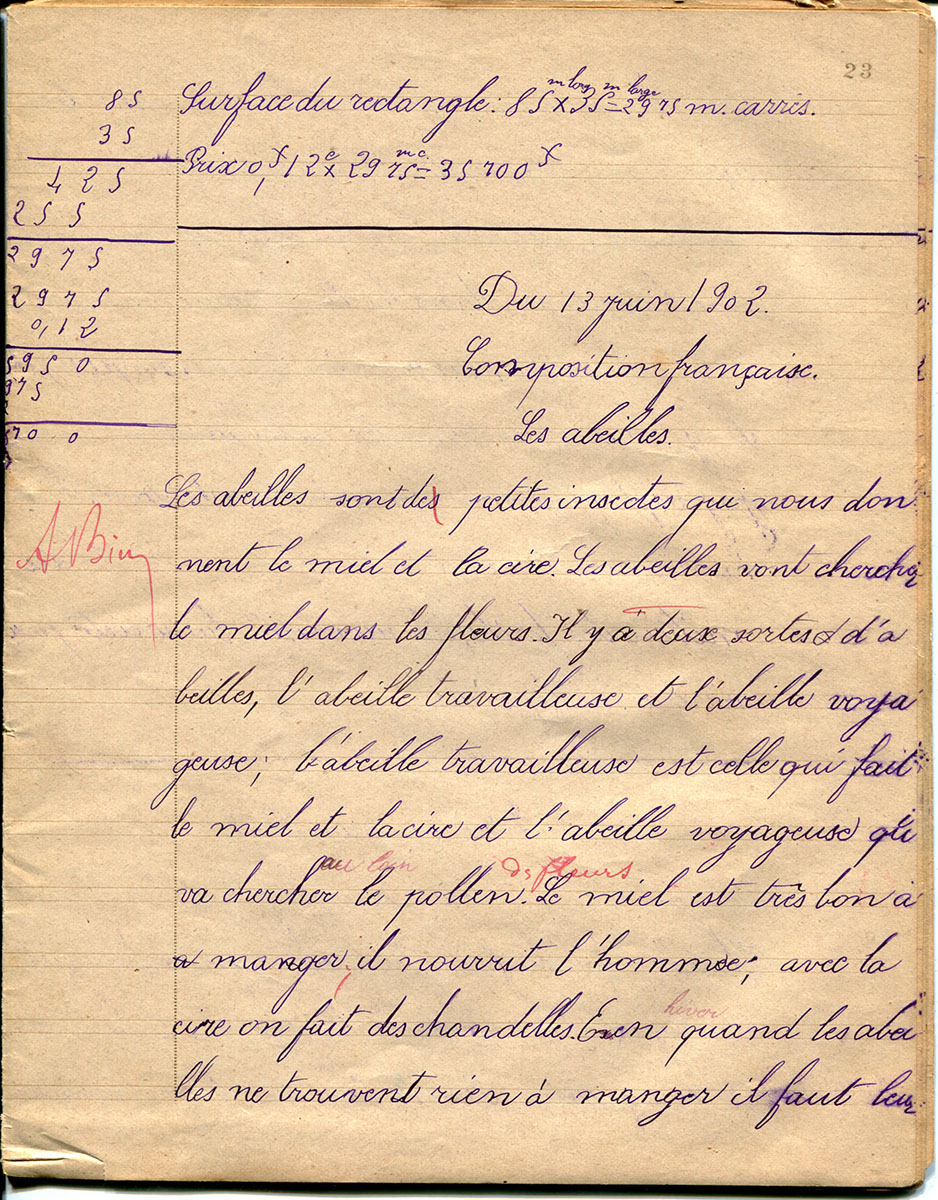 23
85
35
425
255
2975
2975
0,12
5950
975
570 0
Surface du rectangle: 85 m long x 35 m large = 2975 m. carrés.
Prix 0,f 12c x 2975 mc. = 35 700 f
Du 13 juin 1902.
Composition française.
Les abeilles.
Les abeilles sont des petites insectes qui nous don
A Bien
nent le miel et la cire. Les abeilles vont chercher
le miel dans les fleurs. Il y à deux sortes d'a
beilles, l'abeille travailleuse et l'abeille voya
geuse; l'abeille travailleuse est celle qui fait
le miel et la cire et l'abeille voyageuse qui
au loin des fleurs
va chercher le pollen. Le miel est très bon à
a manger, il nourrit l'homme; avec la
hiver
cire on fait des chandelles. En en quand les abei
lles ne trouvent rien à manger il faut leur